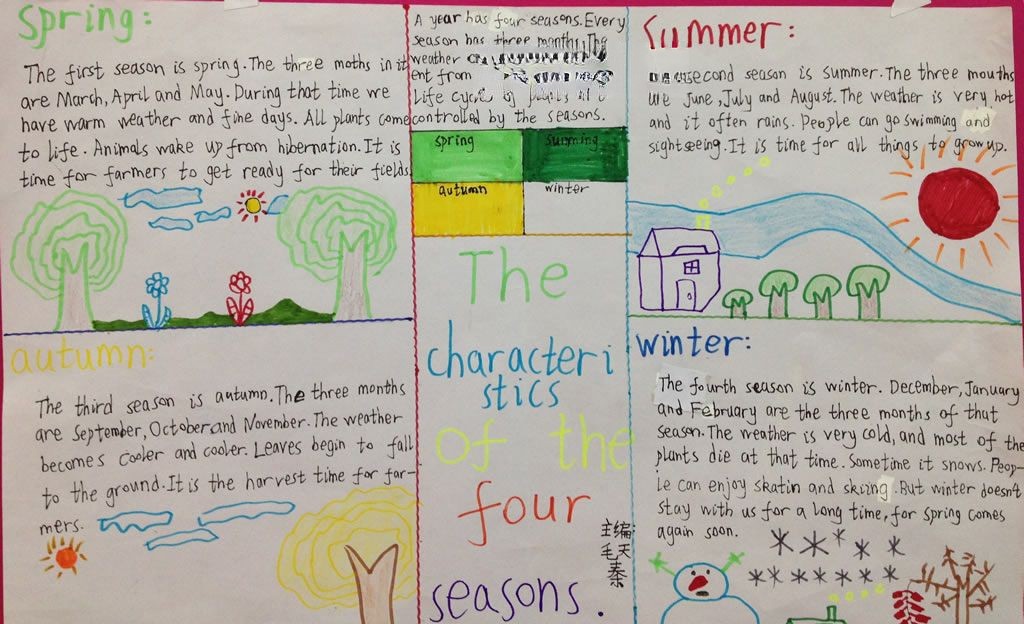 spring:
The first season is spring. The three moths in it
are March, April and May. During that time we
have warm weather and fine days. All plants come
to life. Animals wake up from hibernation. It is
time for farmers to get ready for their fields
A year has four seasons. Every
season has three months. The
weather
ent from
Life cycle of plants
controlled by the seasons.
spring
summing
autumn
winter
The
characteri
stics
of the
four
seasons.
主编
毛天
秦
Summer:
second season is summer. The three mouths
are June, July and August. The weather is very hot
and it often rains. People can go swimming and
sightseeing. It is time for all things to grow up.
autumn:
The third season is autumn. The three months
are September, October and November. The weather
becomes cooler and cooler. Leaves begin to fall
to the ground. It is the harvest time for far-
mers.
winter:
The fourth season is winter. December, January
and February are the three months of that
season. The weather is very cold, and most of the
plants die at that time. Sometime it snows. Peop-
le can enjoy skatin and skiing. But winter doesn't
stay with us for a long time, for spring comes
again soon.